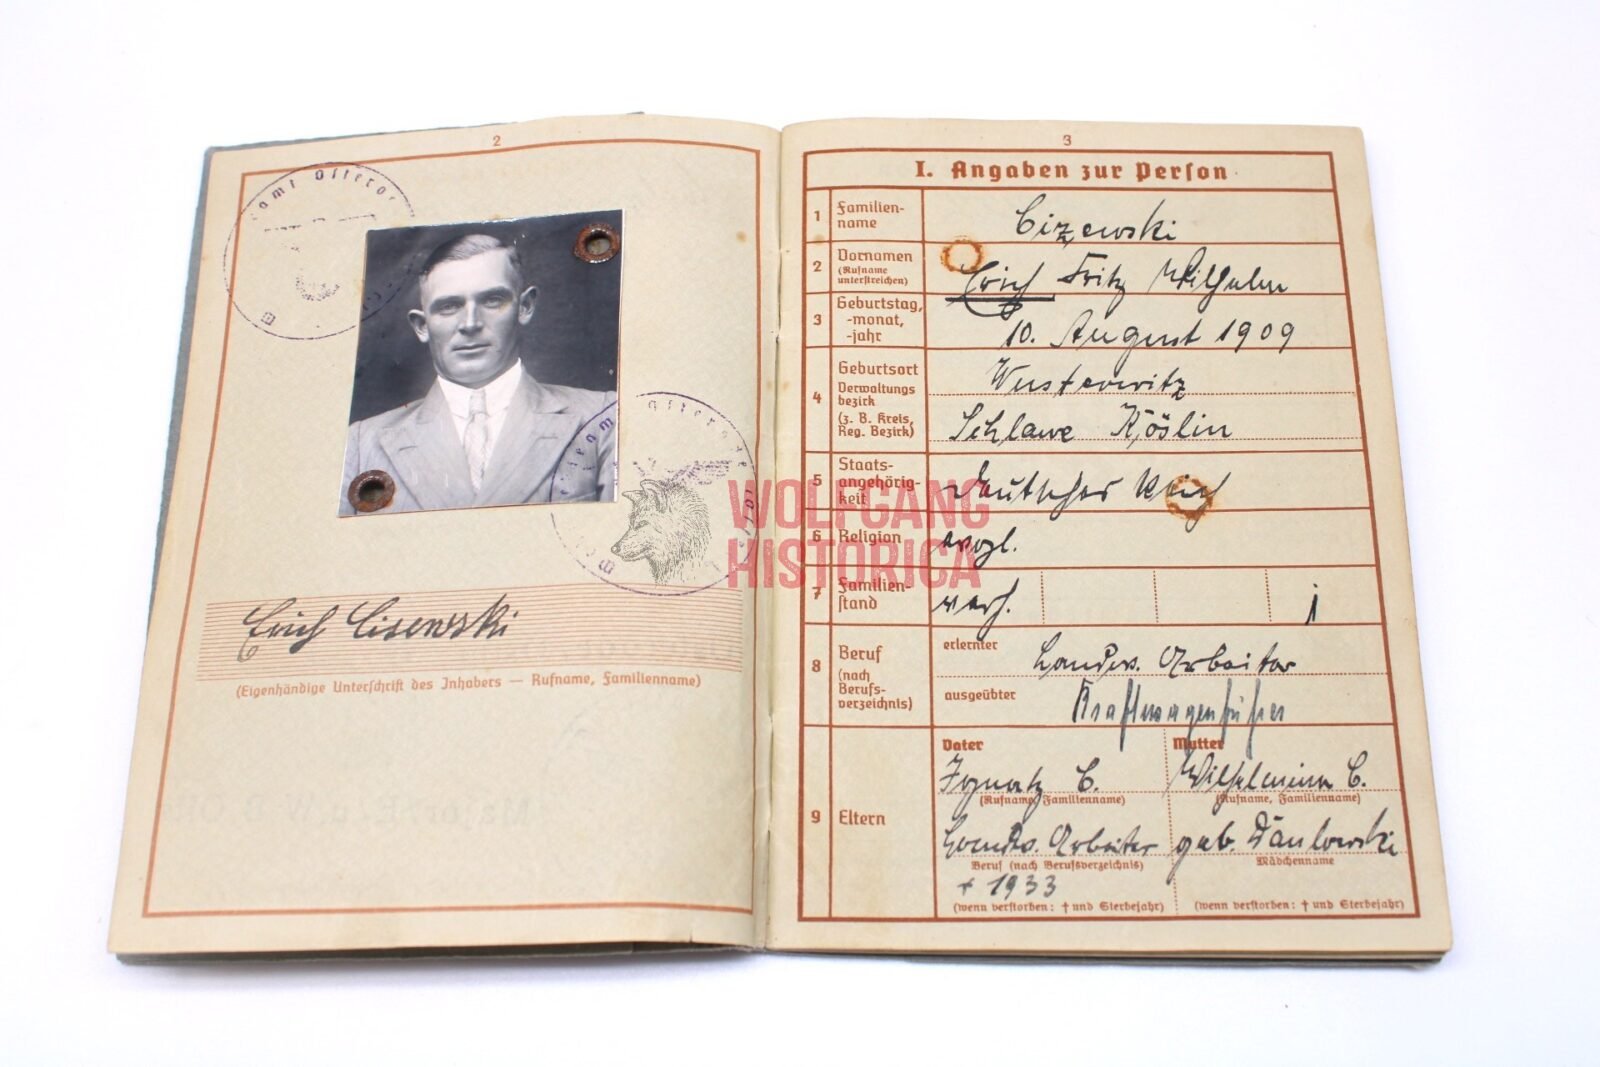 2
amt Osterode
Erich Cisewski
(Eigenhändige Unterschrift des Inhabers — Rufname, Familienname)
WOLFGANG
HISTORICA
3
I. Angaben zur Person
1 Familien-
name
Cizewski
2 Vornamen
(Rufname
unterstreichen)
Erich Fritz Wilhelm
3 Geburtstag,
-monat,
-jahr
10. August 1909
4 Geburtsort
Verwaltungs
bezirk
(z. B. Kreis,
Reg. Bezirk)
Wusterwitz
Schlawe Köslin
5 Staats-
angehörig-
keit
Deutsches Reich
6 Religion
evgl.
7 Familien-
stand
verh.
8 Beruf
(nach
Berufs-
verzeichnis)
erlernter
Landw. Arbeiter
ausgeübter
Kraftwagenführer
9 Eltern
Vater
Ignatz C.
(Rufname, Familienname)
Landw. Arbeiter
Beruf (nach Berufsverzeichnis)
+ 1933
(wenn verstorben: † und Sterbejahr)
Mutter
Wilhelmine C.
(Rufname, Familienname)
geb.
Mädchenname
(wenn verstorben: † und Sterbejahr)